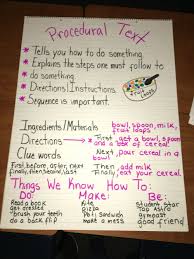 Procedural Text
* Tells you how to do something.
* Explains the steps one must follow to
do something.
* Directions/Instructions.
* Sequence is important.
Fruit Loops
Ingredients/Materials bowl, spoon, milk,
fruit loops
Directions First, get a bowl, spoon
and a box of cereal
Clue words Next, pour cereal in
a bowl
First, before, after, next Then, add milk
finally, then, second, last Finally, eat your cereal!
Things We Know How To:
Do: Make: Be:
Read a book Kite Student Star
get dressed Pizza an astro
brush your teeth PBJ Sandwich gymnast
do a back flip make a mess good friend